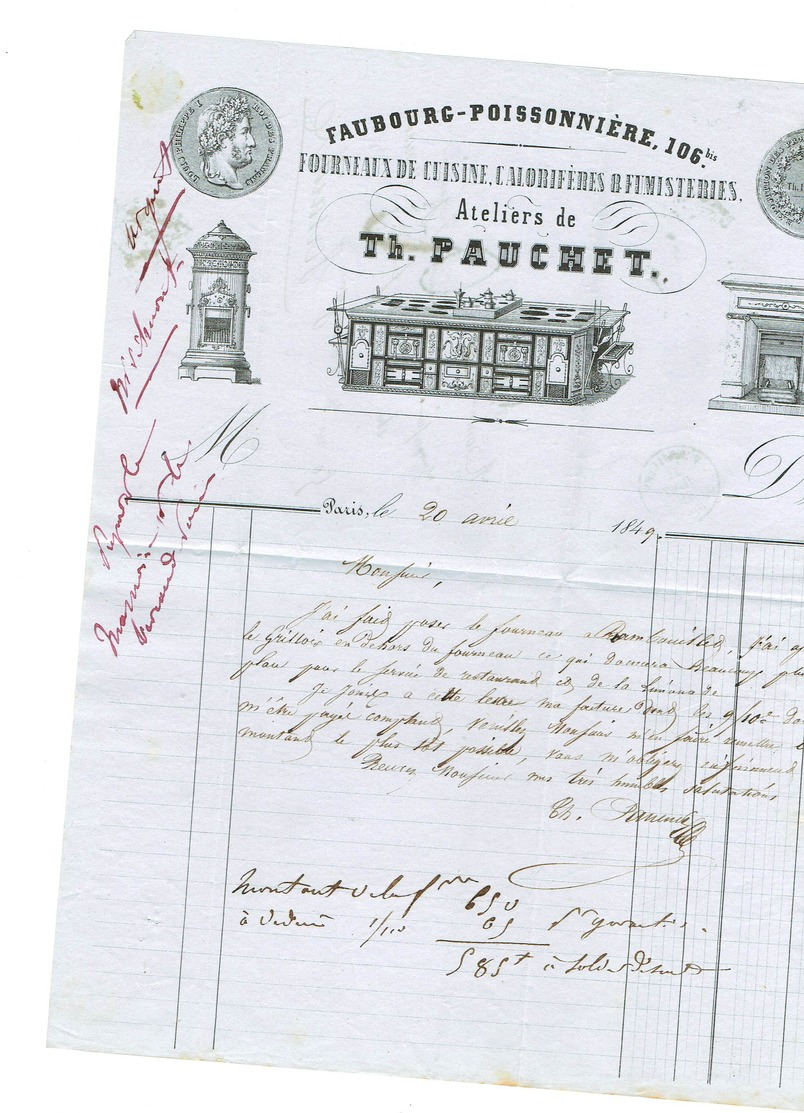 LOUIS PHILIPPE I ROI DES FRANÇAIS
FAUBOURG-POISSONNIÈRE, 106 bis.
FOURNEAUX DE CUISINE, CALORIFÈRES & FUMISTERIES.
Ateliers de
Th. PAUCHET.
urgent
M
D
Paris, le 20 avril 1849.
Monsieur,
J'ai fait poser le fourneau a Rambouillet, j'ai
le Grilloir en dehors du fourneau ce qui donnera beaucoup plus
place pour le service de restaurant et de la limonade
Je joins a cette lettre ma facture dont les 9/10e
m'être payé comptant, veuillez Monsieur m'en faire remettre le
montant le plus tôt possible, vous m'obligerez infiniment
Recevez Monsieur mes très humbles salutations
Th. Pauchet
montant de la fre 650
à déduire 1/10 65 pr garantie.
585 f à solder